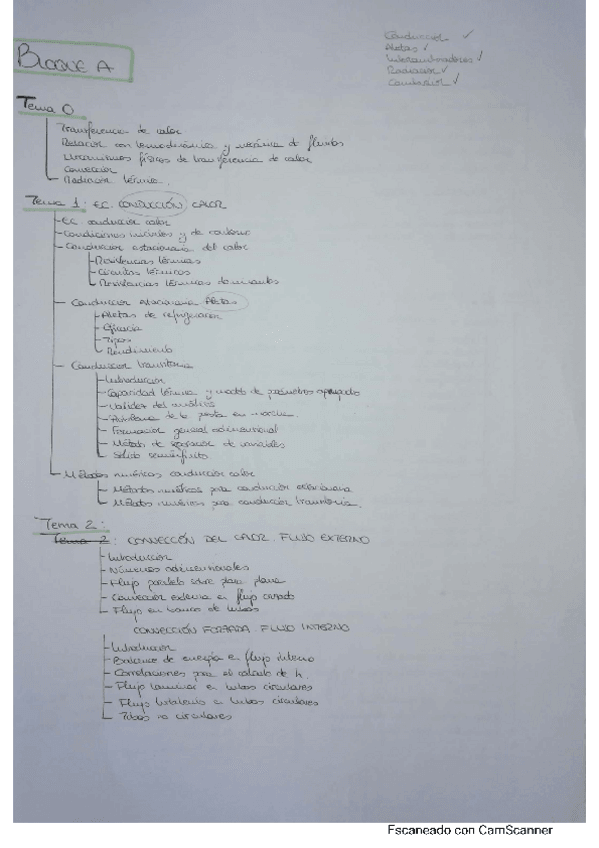 Conducción ✓
Aletas ✓
Intercambiadores ✓
Radiación ✓
BLOQUE A
Tema 0
Transferencia de calor
Relación con termodinámica y mecánica de fluidos
Mecanismos físicos de transferencia de calor
Convección
Radiación térmica.
Tema 1: EC. CONDUCCIÓN CALOR
EC. conducción calor
Condiciones iniciales y de contorno
Conducción estacionaria del calor
Resistencias térmicas
Circuitos térmicos
Resistencias térmicas dominantes
Conducción estacionaria Aletas
Aletas de refrigeración
Eficacia
Tipos
Rendimiento
Conducción transitoria
Introducción
Capacidad térmica y modelo de parámetros agrupados
Validez del análisis
Problema de la puesta en marcha.
Formación general adimensional
Método de separación de variables
Sólido semiinfinito
Métodos numéricos conducción calor
Métodos numéricos para conducción estacionaria
Métodos numéricos para conducción transitoria.
Tema 2:
Tema 2: CONVECCIÓN DEL CALOR. FLUJO EXTERNO
Introducción
Números adimensionales
Flujo paralelo sobre placa plana
Convección externa en flujo cruzado
Flujo en banco de tubos
CONVECCIÓN FORZADA. FLUJO INTERNO
Introducción
Balance de energía en flujo interno
Correlaciones para el cálculo de h.
Flujo laminar en tubos circulares
Flujo turbulento en tubos circulares
Tubos no circulares
Escaneado con CamScanner